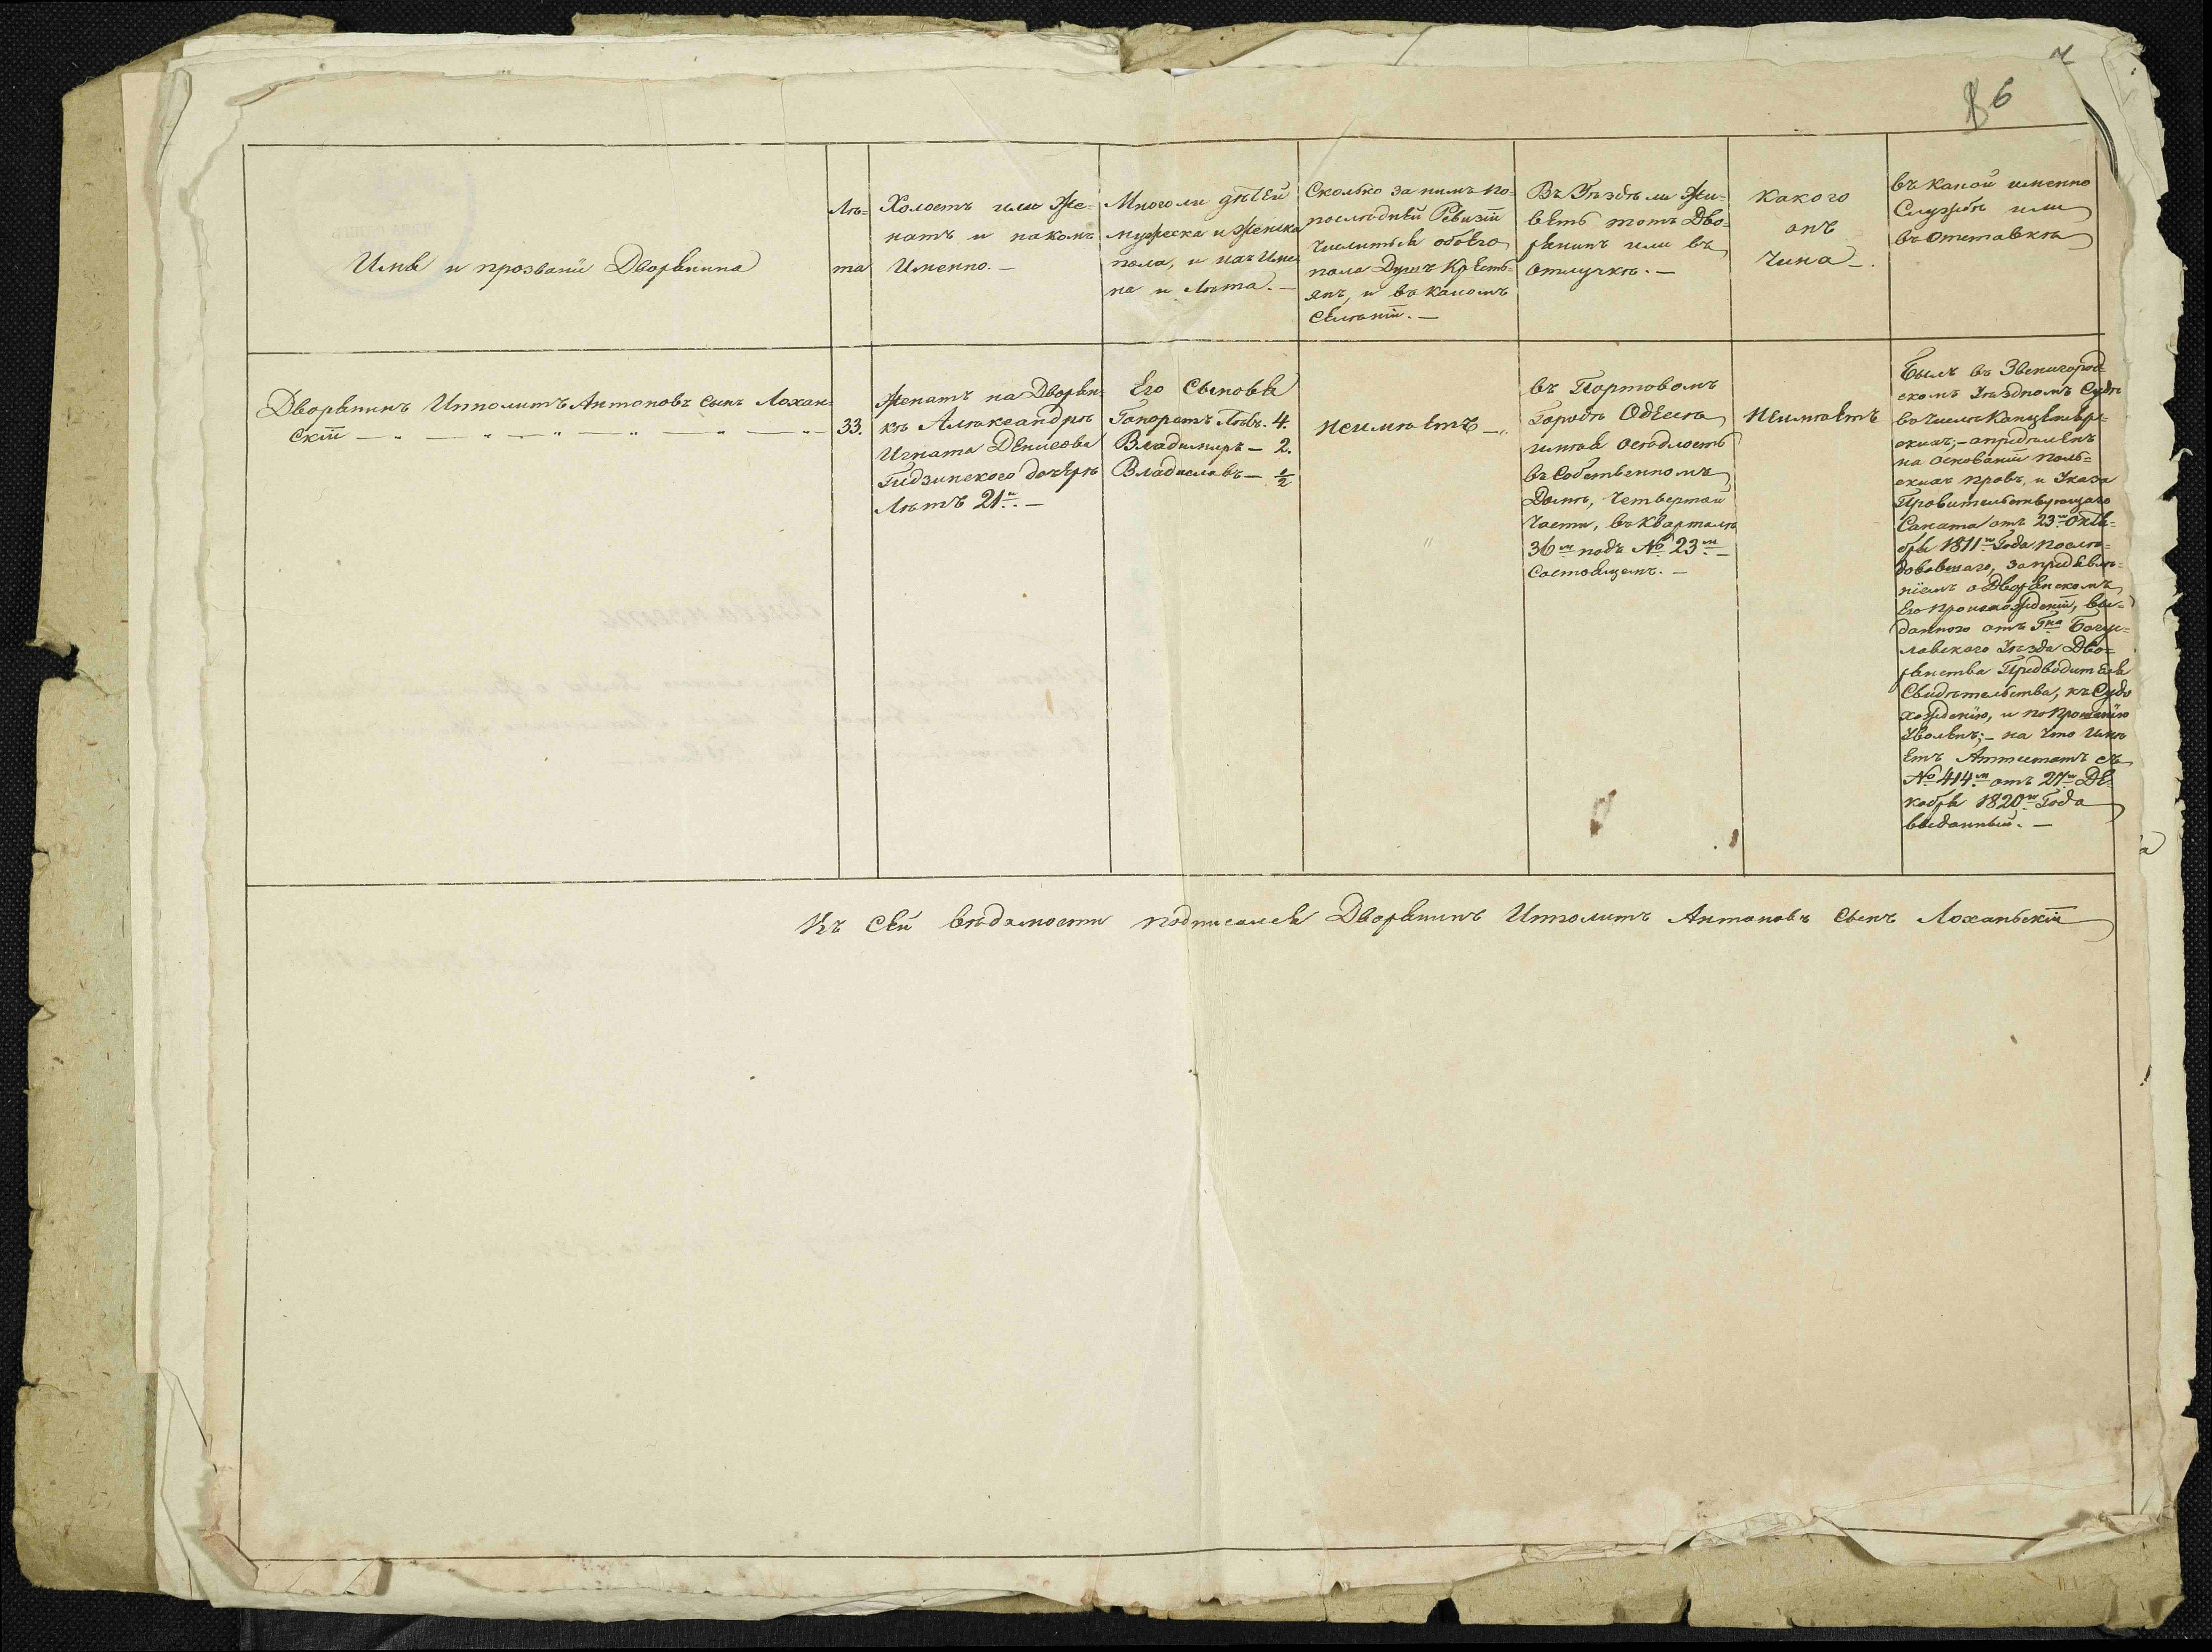 6
Имя и прозваніи Дворянина
Лѣ=
та
Холостъ или Же=
натъ и накомъ
Именно. —
Много ли дѣтей
мужеска и женска
пола, и ихъ Име
на и Лѣта. —
Сколько за нимъ по
послѣдней Ревизіи
числится обоего
пола Душъ Кресть=
янъ, и въ какомъ
Селѣніи. —
Въ Уѣздѣ ли Жи=
веть тотъ Дво=
рянинъ или въ
отлучкѣ. —
Какого
онъ
Чина —.
въ какой именно
Службѣ или
въ отставкѣ
Дворянинъ Ипполитъ Антоновъ сынъ Лохан=
скій
33.
Женатъ на Дворян=
кѣ Алѣксандрѣ
Игната Денисова
Гидзинского дочерѣ
Лѣтъ 21и. —
Его Сыновья
Гоноратъ Лѣтъ. 4.
Владимиръ — 2.
Владиславъ — ½
неимѣетъ —
въ Портовомъ
Городѣ Одессѣ
имѣя осѣдлость
въ Собственномъ
Домѣ, четвертой
части, въ Кварталѣ
36м подъ № 23м —
Состоящемъ. —
Неимѣетъ
Былъ въ Звенигород=
скомъ Уѣздномъ Судѣ
въ числѣ Канцеляр=
скихъ; — опридѣленъ
на основаніи поль=
скихъ правъ, и Указа
Правительствующаго
Сената отъ 23го Октя=
бря 1811го Года послѣ=
довавшаго, запридъявлѣ=
ніемъ о Дворянскомъ
Его происхожденіи, вы=
данного отъ Гна Богус=
лавского Уѣзда Дво=
рянства Предводителя
Свидѣтельства, къ Судо
хожденію, и по Прошенію
Уволенъ; — на что имѣ
етъ Аттестатъ съ
№ 414м отъ 27го Де=
кабря 1820го Года
выданный. —
Къ сей вѣдомости подписался Дворянинъ Ипполитъ Антоновъ сынъ Лоханьскій